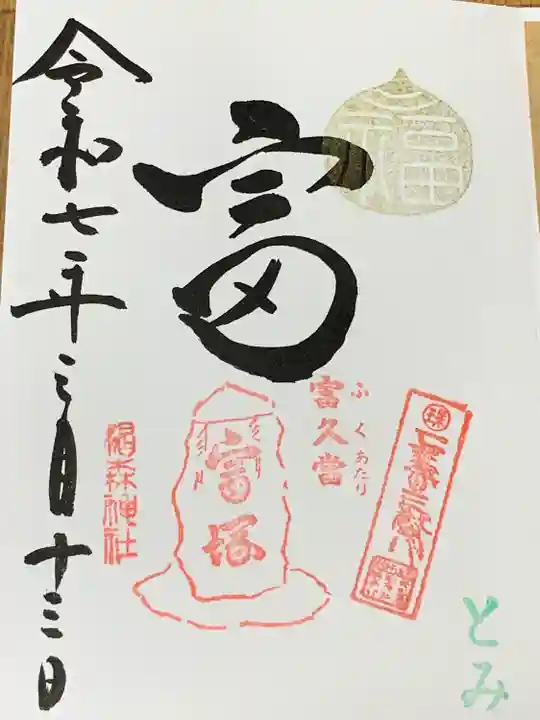 富
とみ
富久當
ふくあたり
富塚
椙森神社
令和七年三月十三日